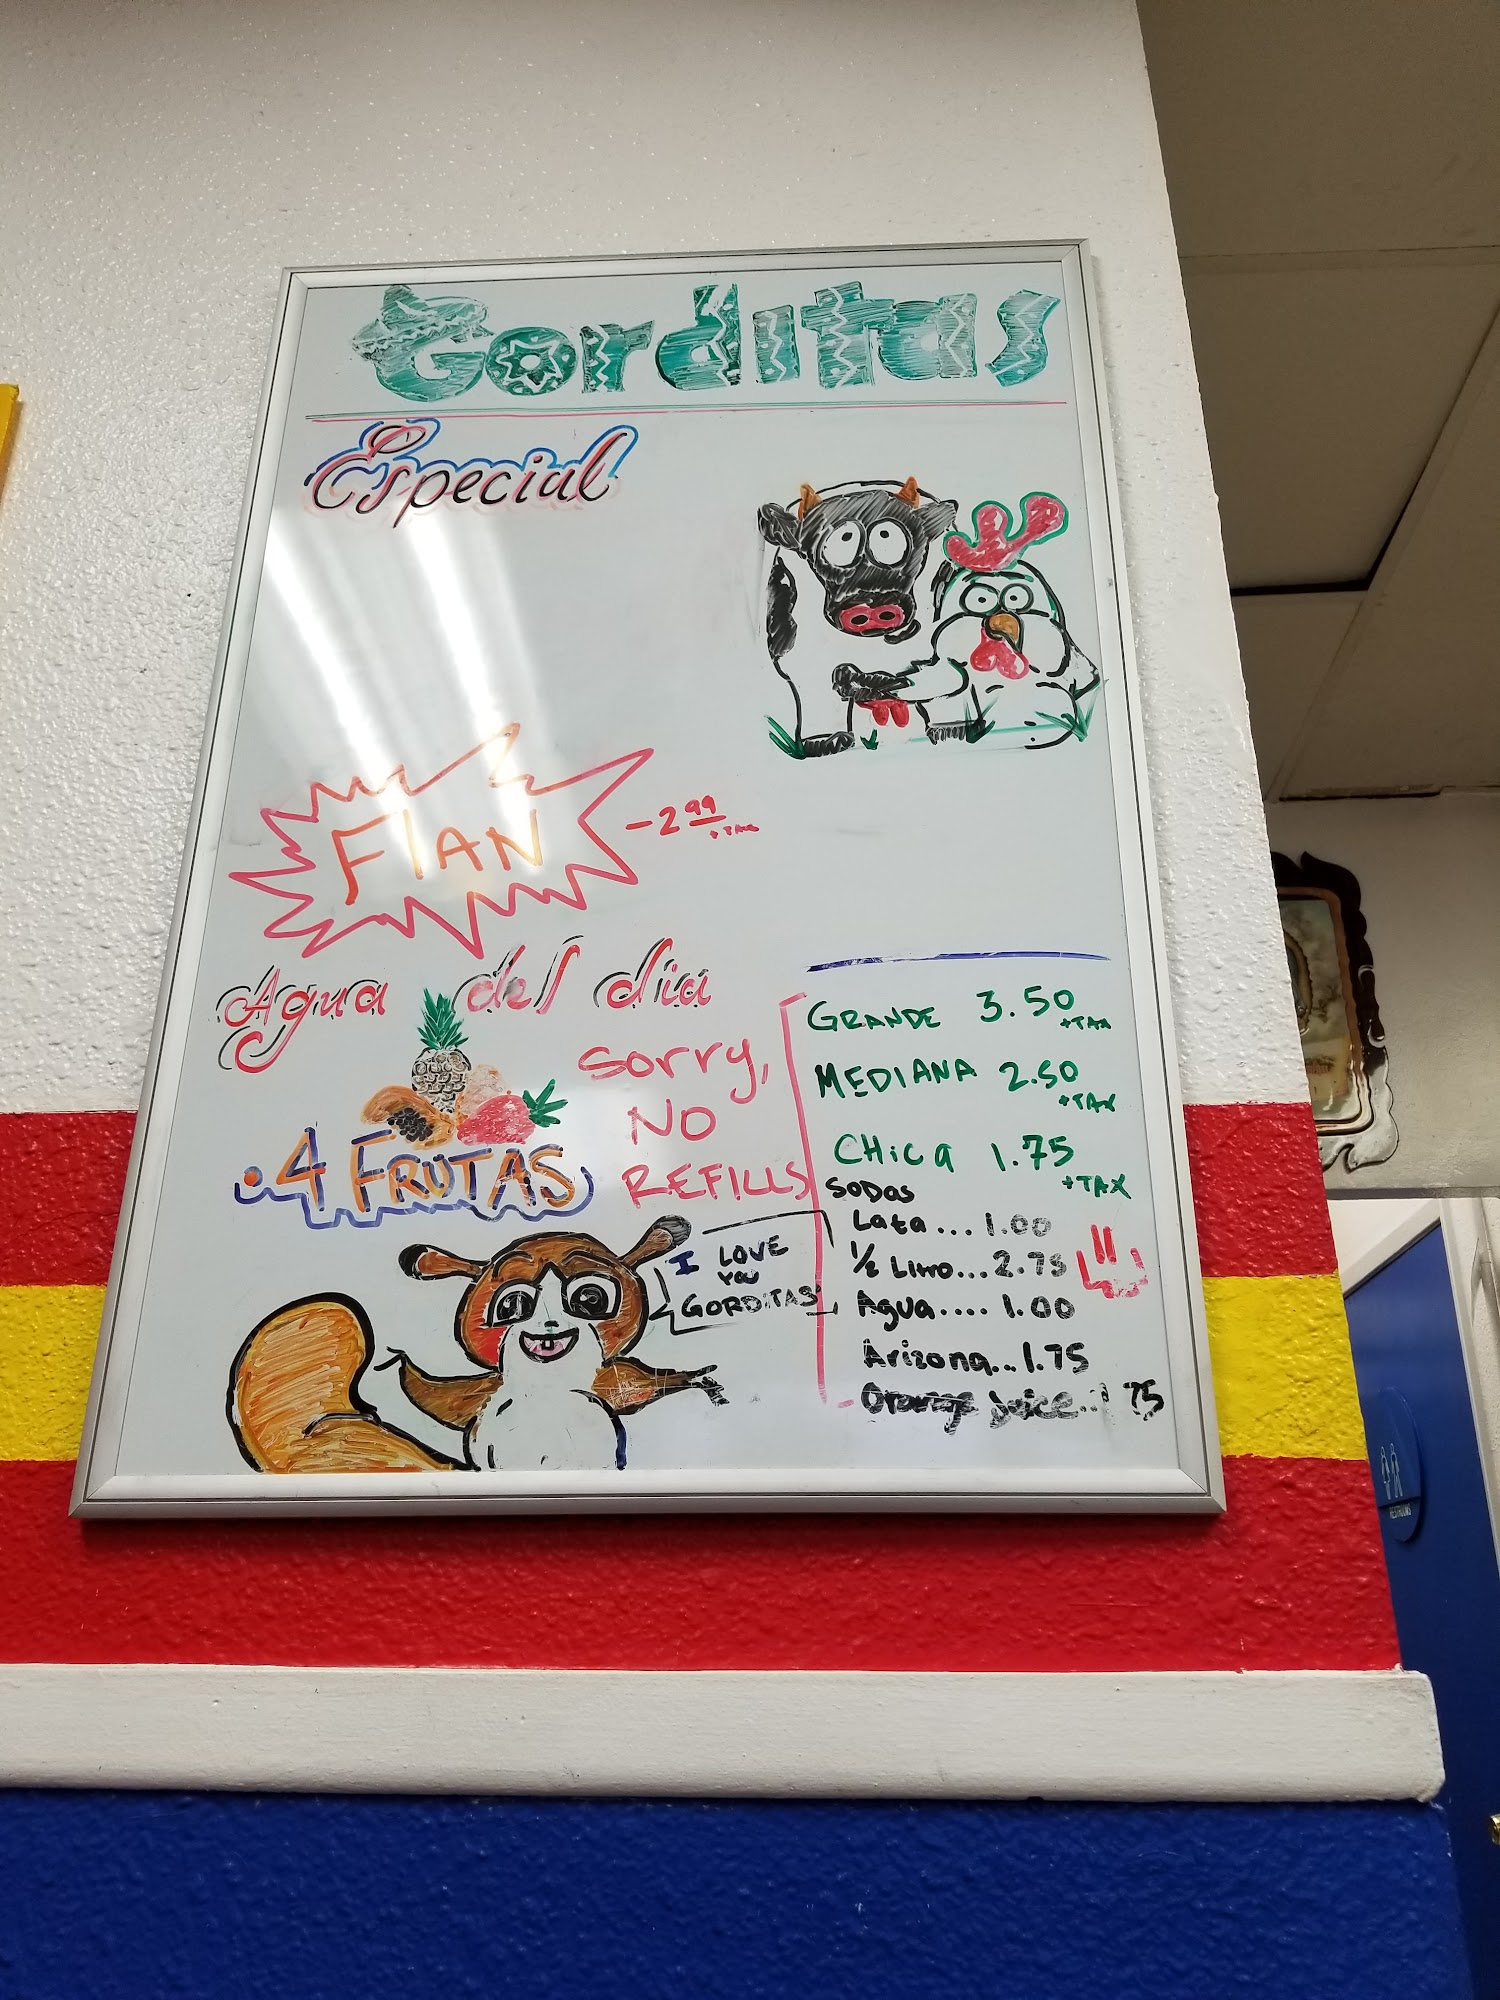 Gorditas
Especial
Flan - 2.99
+ TAX
Agua del dia
.4 FRUTAS
Sorry,
NO
REFILLS
GRANDE 3.50
+TAX
MEDIANA 2.50
+TAX
CHICA 1.75
+TAX
SODAS
Lata... 1.00
1/2 Litro... 2.75
Agua..... 1.00
Arizona... 1.75
Orange Juice..1 75
I LOVE
YOU
GORDITAS
RESTROOMS